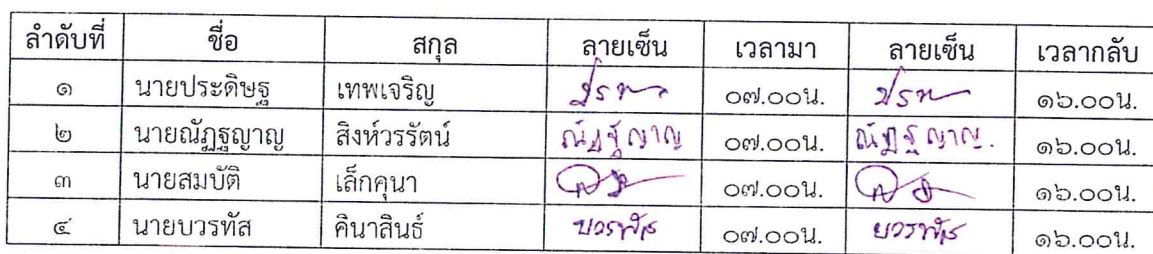 ลำดับที่ ชื่อ สกุล ลายเซ็น เวลามา ลายเซ็น เวลากลับ
๑ นายประดิษฐ เทพเจริญ ๐๗.๐๐น. ๑๖.๐๐น.
๒ นายณัฏฐญาญ สิงห์วรรัตน์ ณัฏฐญาญ ๐๗.๐๐น. ณัฏฐญาญ. ๑๖.๐๐น.
๓ นายสมบัติ เล็กคุนา ๐๗.๐๐น. ๑๖.๐๐น.
๔ นายบวรทัส คินาสินธ์ บวรทัส ๐๗.๐๐น. บวรทัส ๑๖.๐๐น.